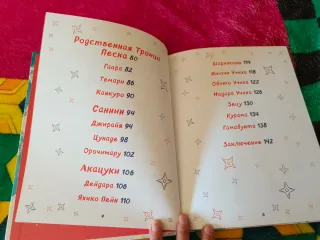 Родственная Троица
Песка 80
Гаара 82
Темари 86
Канкуро 90
Саннин 94
Джирайя 94
Цунаде 98
Орочимару 102
Акацуки 106
Дейдара 106
Яхико Пейн 110
114
Итачи Учиха 118
Обито Учиха 122
Мадара Учиха 126
Зецу 130
Курама 134
Гамабунта 138
Заключение 142